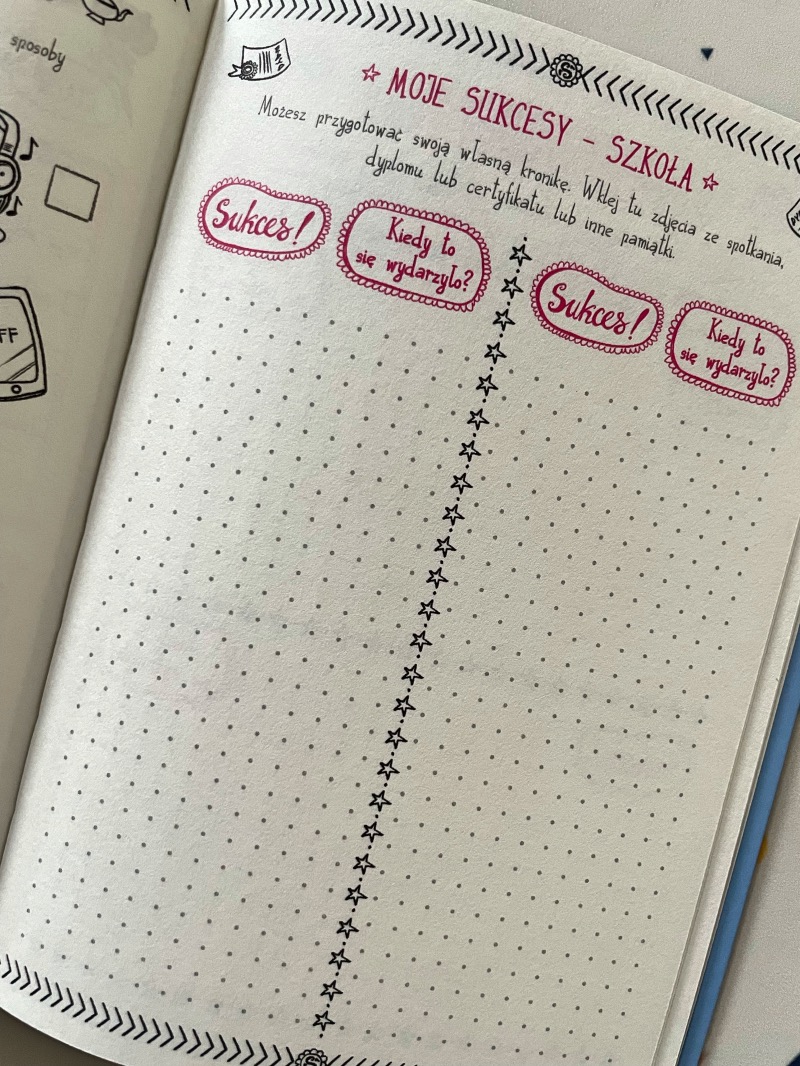 sposoby
FF
S
☆ MOJE SUKCESY – SZKOŁA ☆
Możesz przygotować swoją własną kronikę. Wklej tu zdjęcia ze spotkania,
dyplomu lub certyfikatu lub inne pamiątki.
Sukces!
Kiedy to
się wydarzyło?
Sukces!
Kiedy to
się wydarzyło?
S